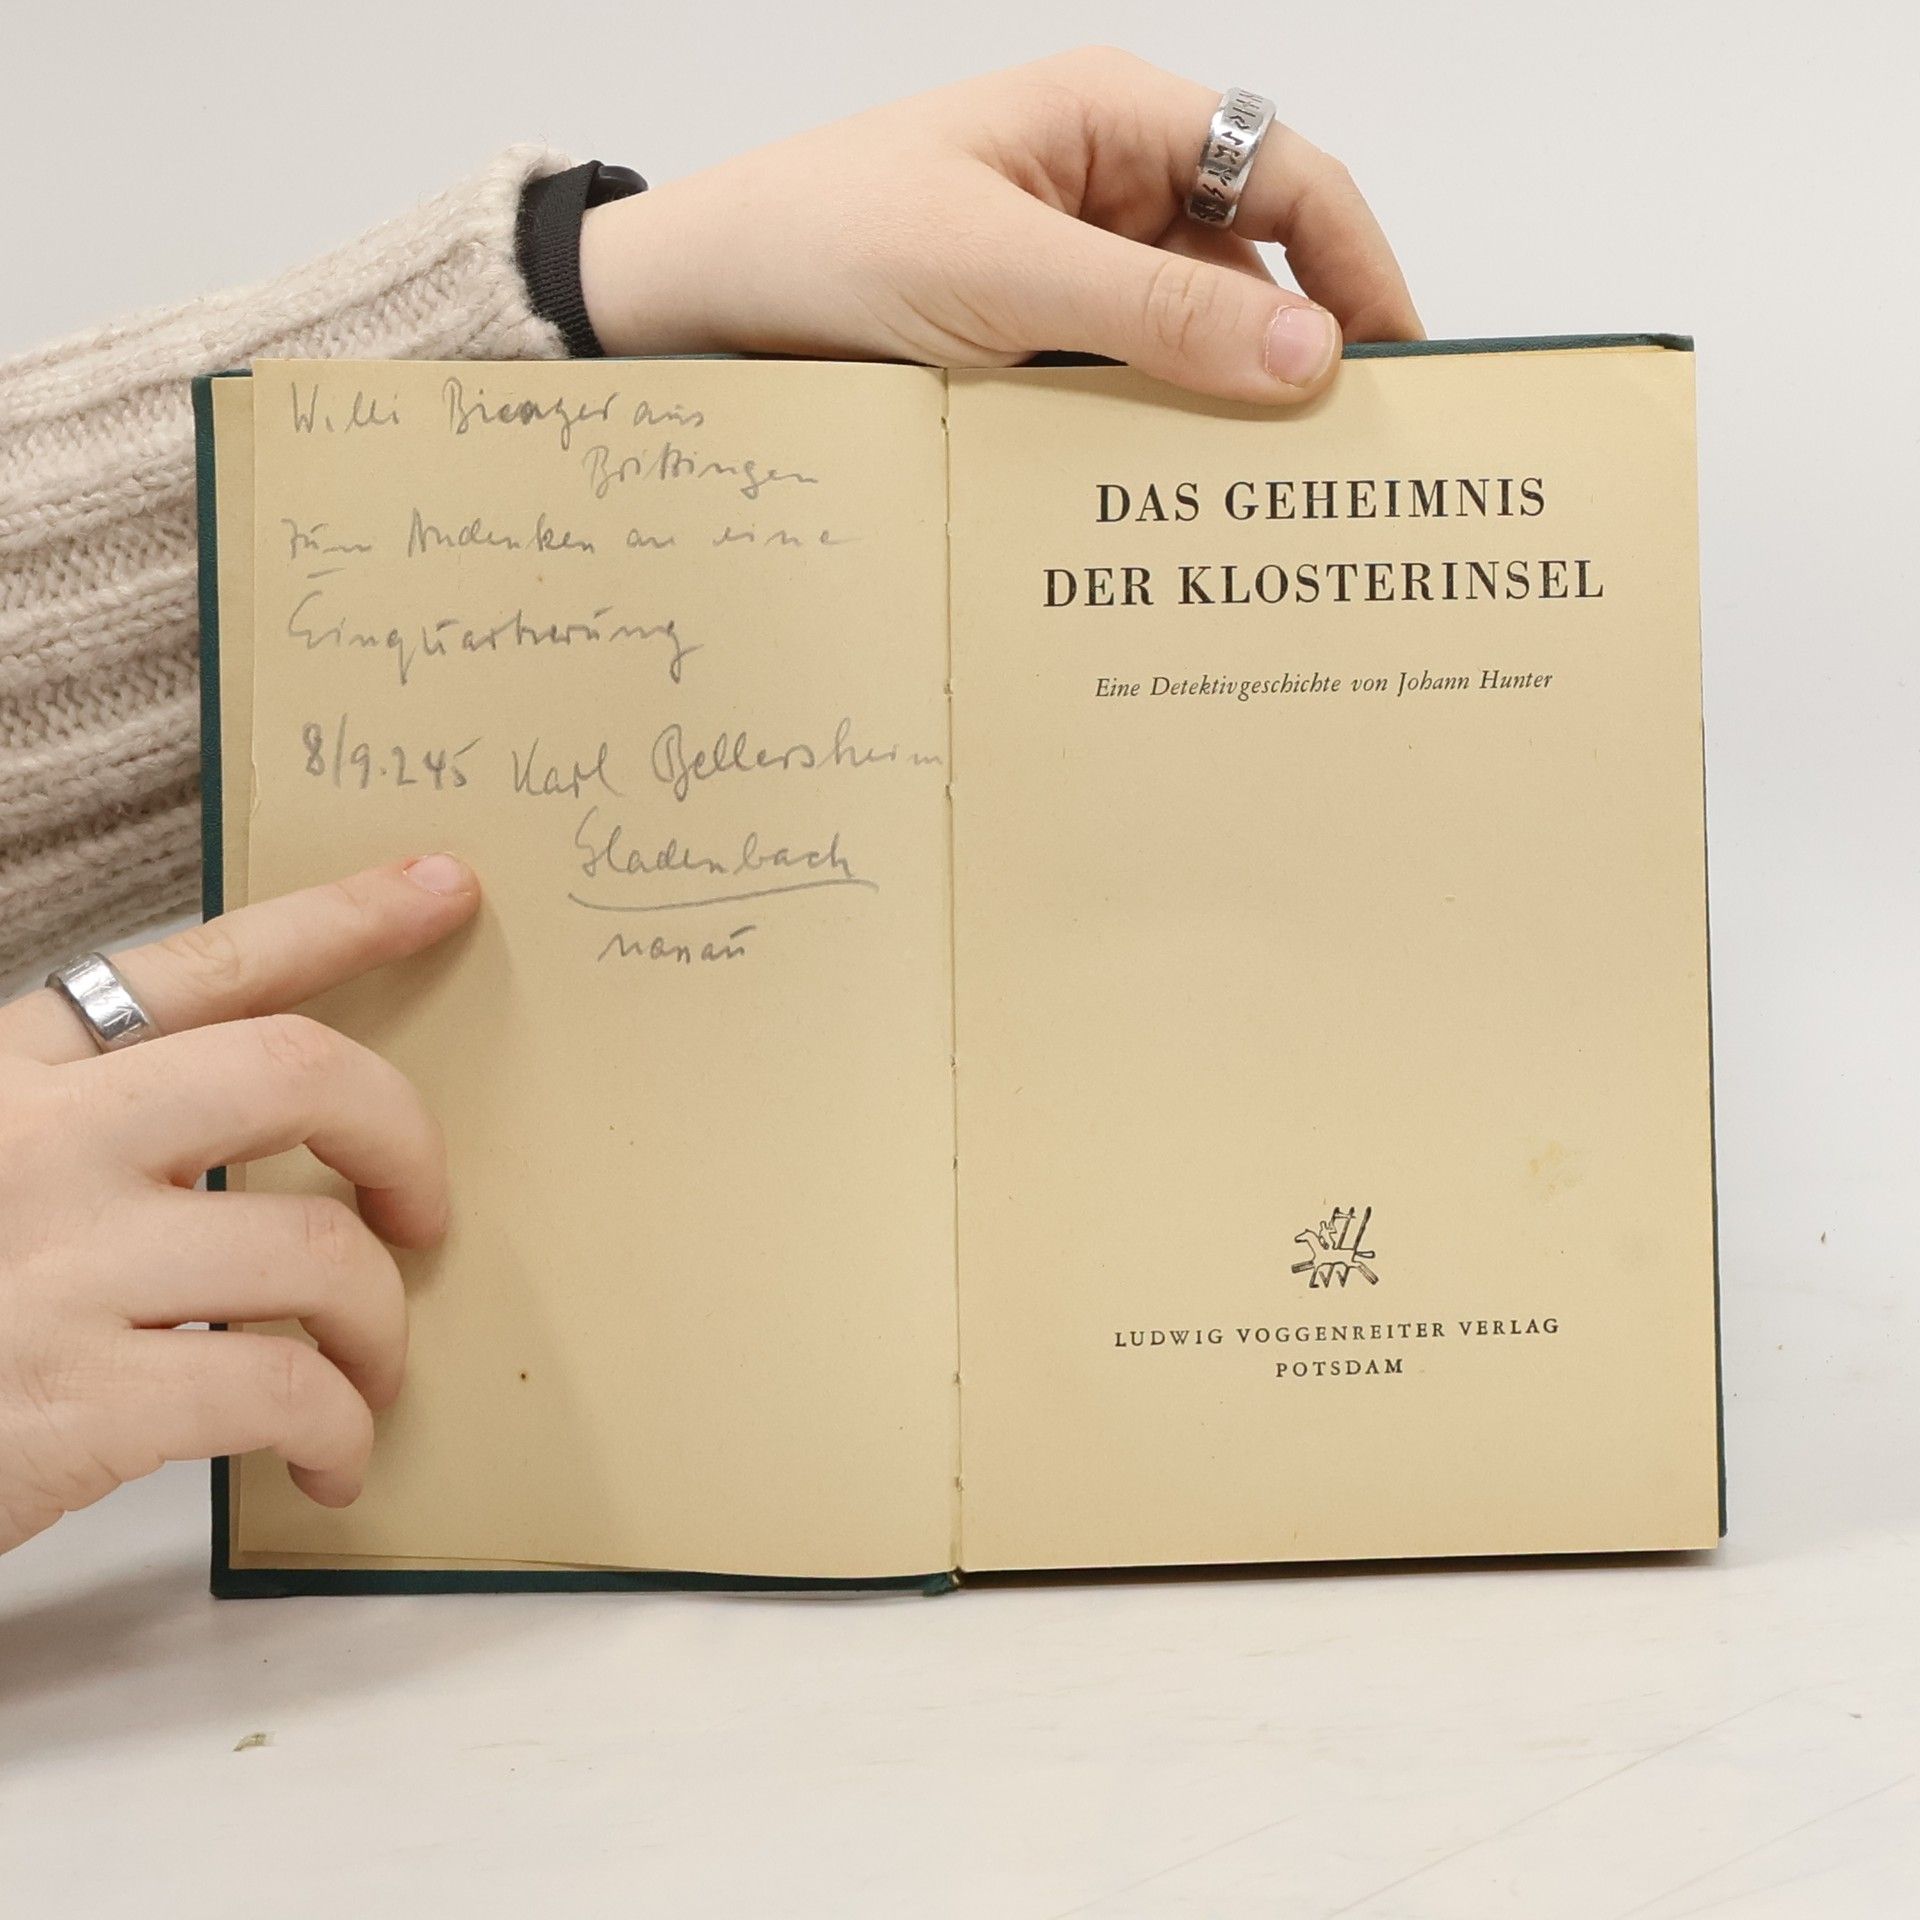 Willi aus
Bottingen
zum Andenken an eine
Einquartierung
8/9.2 45 Karl Bellersheim
Gladenbach
DAS GEHEIMNIS
DER KLOSTERINSEL
Eine Detektivgeschichte von Johann Hunter
LUDWIG VOGGENREITER VERLAG
POTSDAM